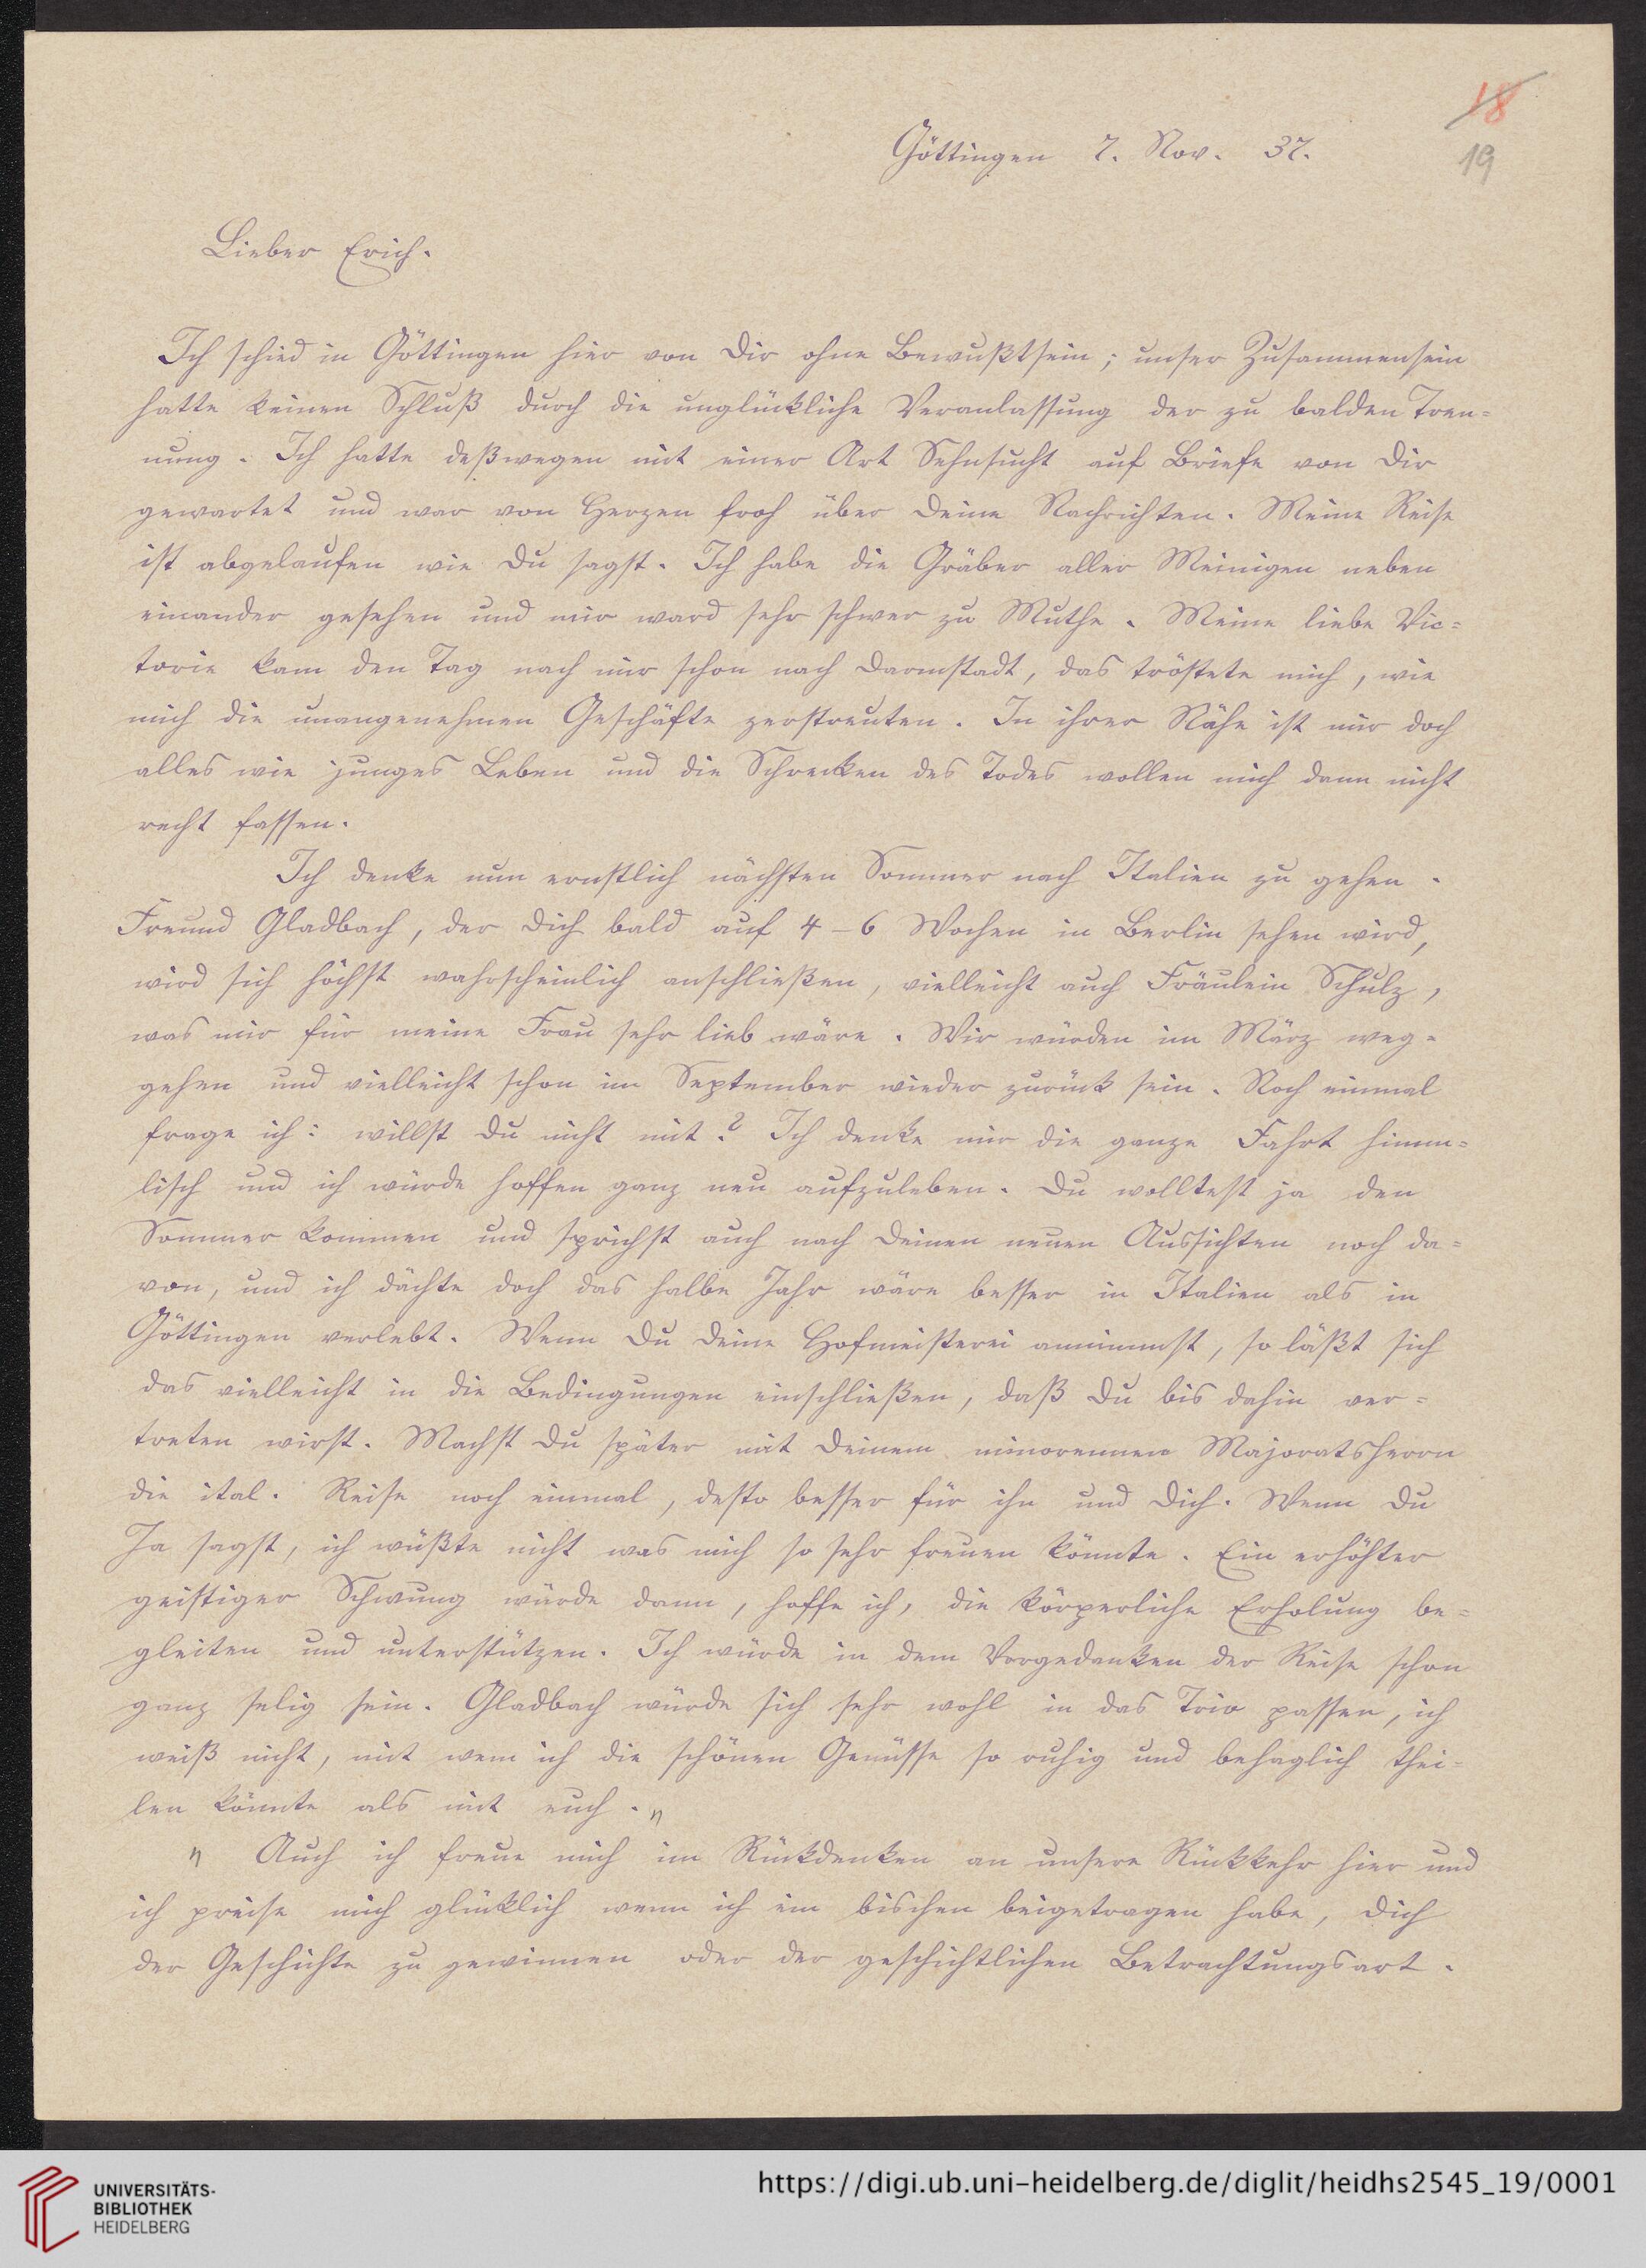 18
Göttingen 7. Nov. 37.
19
Lieber Erich.
Ich schied in Göttingen hier von Dir ohne Bewußtsein; unser Zusammensein
hatte keinen Schluß durch die unglückliche Veranlassung der zu balden Tren=
nung. Ich hatte deßwegen mit einer Art Sehnsucht auf Briefe von Dir
gewartet und war von Herzen froh über Deine Nachrichten. Meine Reise
ist abgelaufen wie Du sagst. Ich habe die Gräber aller Meinigen neben
einander gesehen und mir ward sehr schwer zu Muthe. Meine liebe Vic=
torie kam den Tag nach mir schon nach Darmstadt, das tröstete mich, wie
mich die unangenehmen Geschäfte zerstreuten. In ihrer Nähe ist mir doch
alles wie junges Leben und die Schrecken des Todes wollen mich dann nicht
recht fassen.
Ich denke nun ernstlich nächsten Sommer nach Italien zu gehen.
Freund Gladbach, der Dich bald auf 4–6 Wochen in Berlin sehen wird,
wird sich höchst wahrscheinlich anschließen, vielleicht auch Fräulein Schulz,
was mir für meine Frau sehr lieb wäre. Wir würden im März weg=
gehen und vielleicht schon im September wieder zurück sein. Noch einmal
frage ich: willst Du nicht mit? Ich denke mir die ganze Fahrt himm=
lisch und ich würde hoffen ganz neu aufzuleben. Du wolltest ja den
Sommer kommen und sprichst auch nach Deinen neuen Aussichten noch da=
von, und ich dächte doch das halbe Jahr wäre besser in Italien als in
Göttingen verlebt. Wenn Du Deine Hofmeisterei annimmst, so läßt sich
das vielleicht in die Bedingungen einschließen, daß Du bis dahin ver=
treten wirst. Machst Du später mit Deinem minorennen Majoratsherrn
die ital. Reise noch einmal, desto besser für ihn und Dich. Wenn Du
Ja sagst, ich wüßte nicht was mich so sehr freuen könnte. Ein erhöhter
geistiger Schwung würde dann, hoffe ich, die körperliche Erholung be=
gleiten und unterstützen. Ich würde in dem Vorgedanken der Reise schon
ganz selig sein. Gladbach würde sich sehr wohl in das Trio passen, ich
weiß nicht, mit wem ich die schönen Genüsse so ruhig und behaglich thei=
len könnte als mit euch. "
" Auch ich freue mich im Rückdenken an unsere Rückkehr hier und
ich preise mich glücklich wenn ich ein bischen beigetragen habe, Dich
der Geschichte zu gewinnen oder der geschichtlichen Betrachtungsart.
UNIVERSITÄTS-
BIBLIOTHEK
HEIDELBERG
https://digi.ub.uni-heidelberg.de/diglit/heidhs2545_19/0001